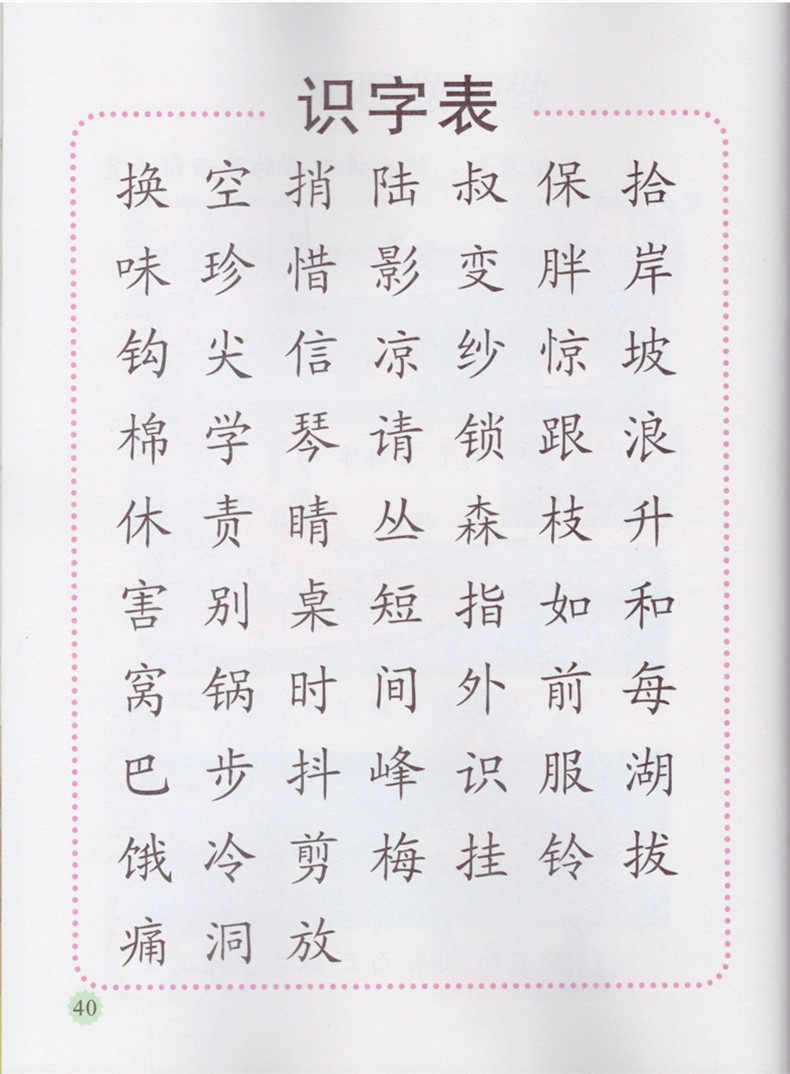 识字表
换 空 捎 陆 叔 保 拾
味 珍 惜 影 变 胖 岸
钩 尖 信 凉 纱 惊 坡
棉 学 琴 请 锁 跟 浪
休 责 睛 丛 森 枝 升
害 别 桌 短 指 如 和
窝 锅 时 间 外 前 每
巴 步 抖 峰 识 服 湖
饿 冷 剪 梅 挂 铃 拔
痛 洞 放
40